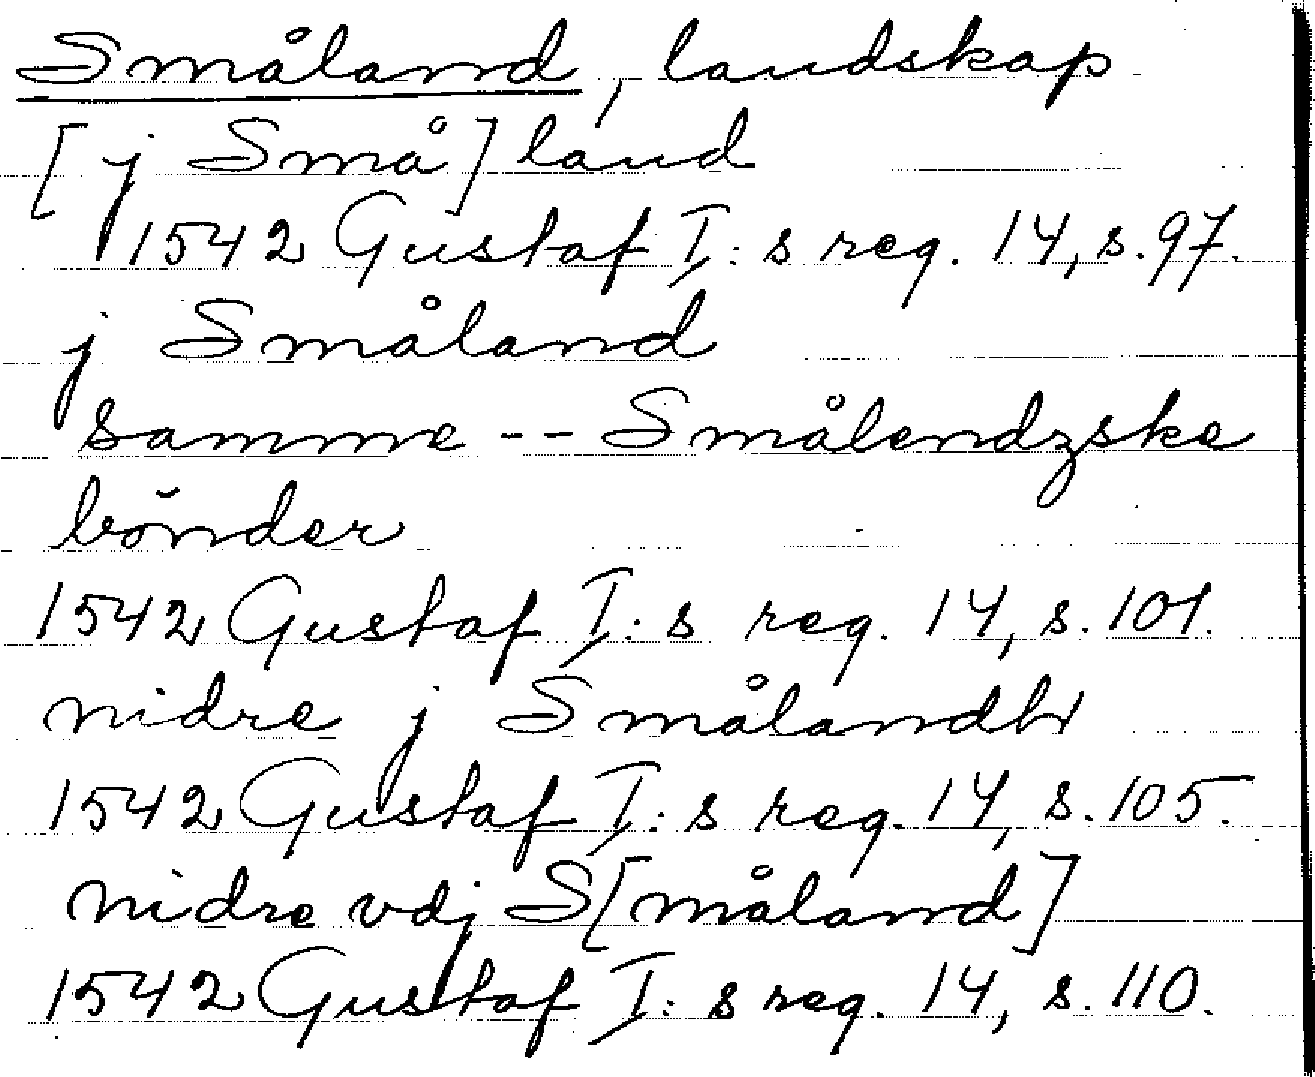 Småland, landskap
[j Små]land
1542 Gustaf I:s reg. 14, s. 97.
j Småland
samme -- Smålendzske
bönder
1542 Gustaf I:s reg. 14, s. 101.
nidre j
1542 Gustaf I:s reg. 14, s. 105.
nidre vdj S[måland]
1542 Gustaf I:s reg. 14, s. 110.